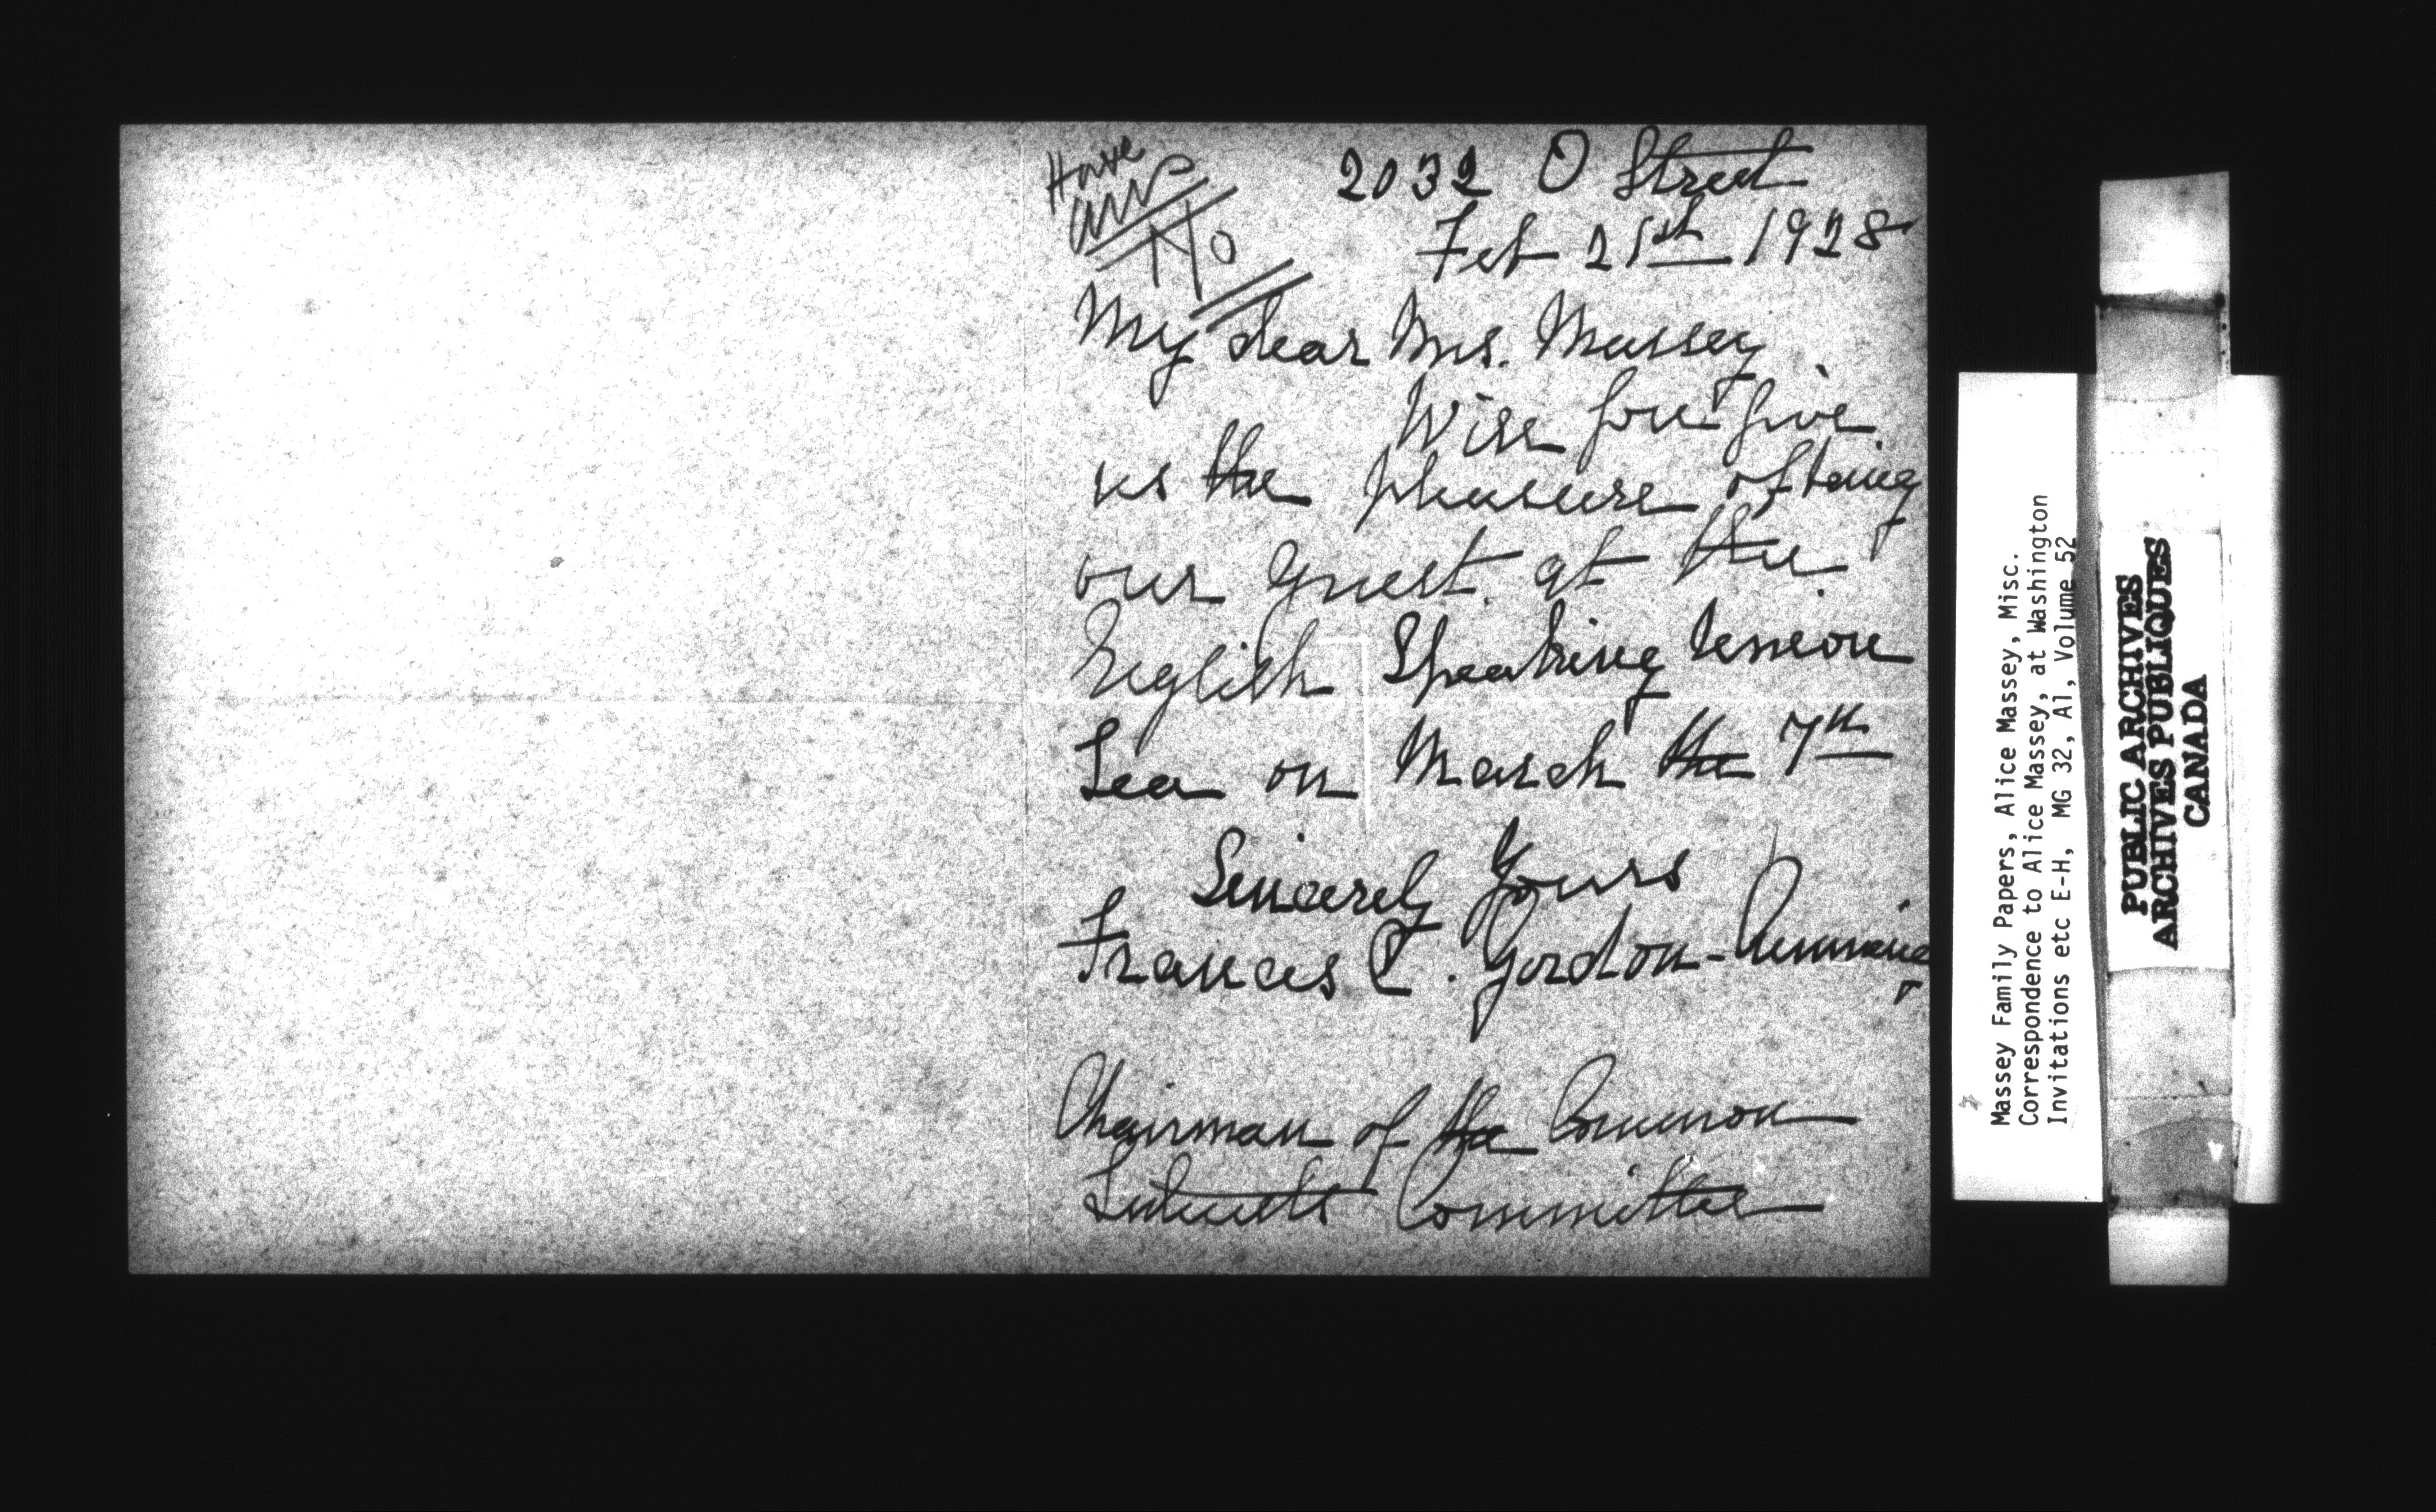 Have
ans
No
2032 O Street
Feb 21st 1928
My dear Mrs. Massey
Will you give
us the pleasure of being
our guest at the
English Speaking Union
Tea on March the 7th
Sincerely Yours
Frances C. Gordon-Cumming
Chairman of the Common
Interests Committee
Massey Family Papers, Alice Massey, Misc.
Correspondence to Alice Massey, at Washington
Invitations etc E-H, MG 32, A1, Volume 52
PUBLIC ARCHIVES
ARCHIVES PUBLIQUES
CANADA